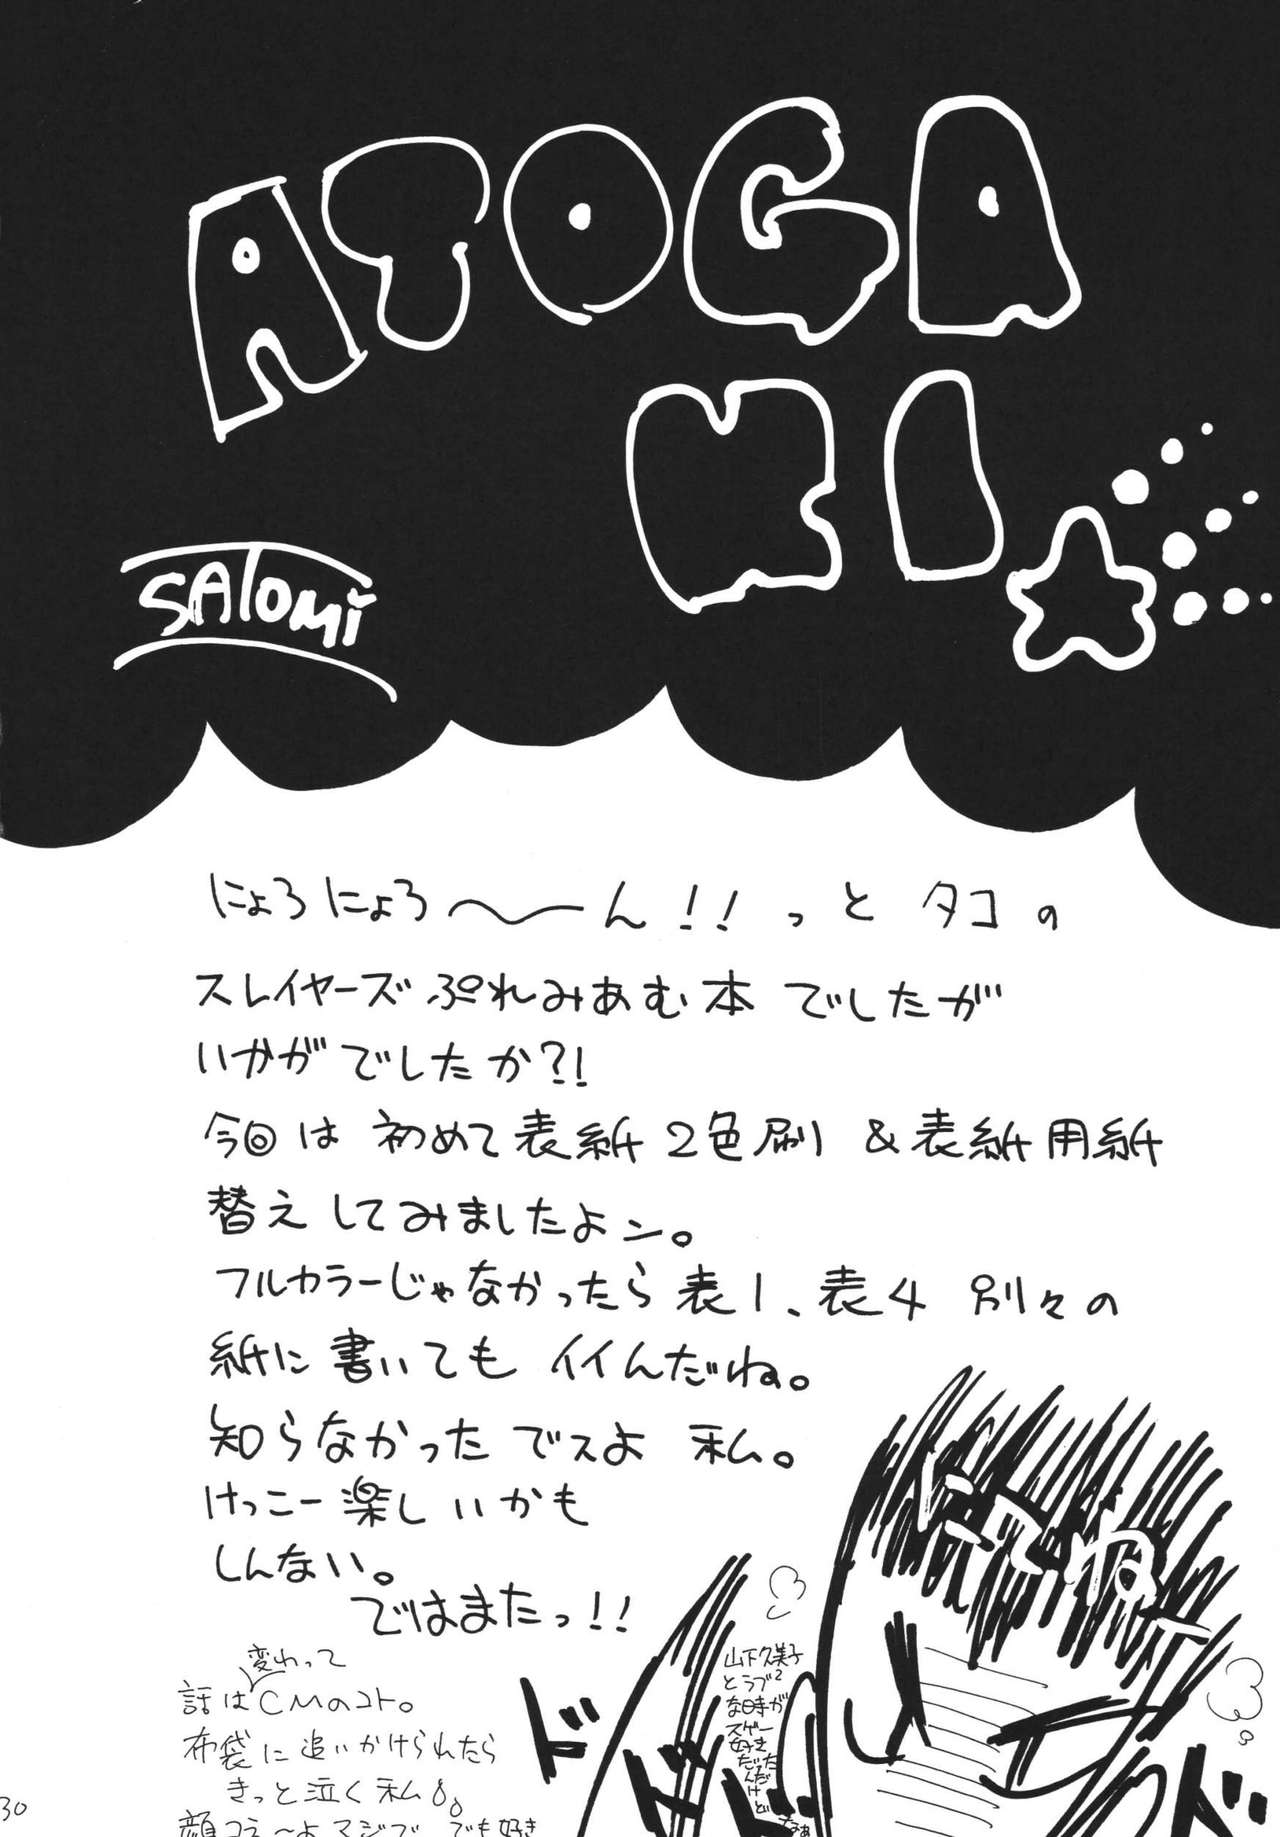 ATOGA
KI
SATOMi
にょろにょろ〜ん!!っとタコの
スレイヤーズぷれみあむ本でしたが
いかがでしたか?!
今回は初めて表紙2色刷&表紙用紙
替えしてみましたよン。
フルカラーじゃなかったら表1、表4別々の
紙に書いてもイイんだね。
知らなかったでスよ私。
けっこー楽しいかも
しんない。
ではまたっ!!
話は変わってCMのコト。
布袋に追いかけられたら
きっと泣く私。
顔コえ〜よマジで でも好き
山下久美子
とラブ2
な時が
スゲー
好き
だったんだけど
なぁ
にてねー
ドドドド
30